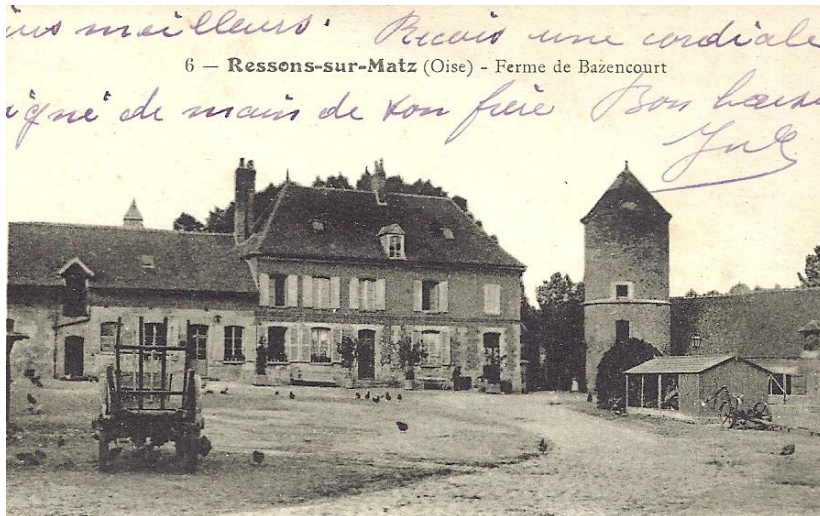 meilleurs. Recois une cordiale
6 — Ressons-sur-Matz (Oise) - Ferme de Bazencourt
de main de ton frère Bon